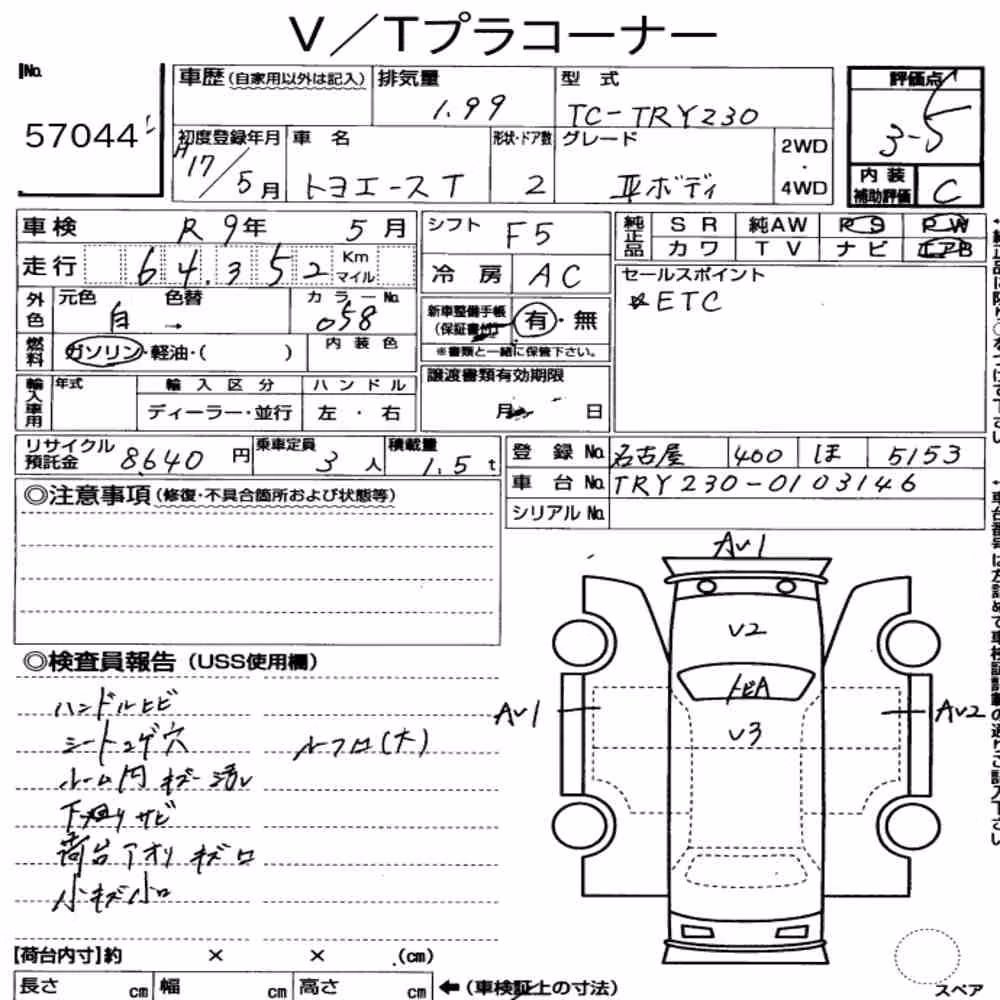 V/Tプラコーナー
No.
57044
車歴(自家用以外は記入) 排気量 型 式 評価点
1.99 TC-TRY230 3-5
初度登録年月 車 名 形状・ドア数 グレード 2WD・4WD
H17/5月 トヨエースT 2 ボディ
内 装 補助評価 C
車検 R9年 5月 シフト F5
純正品 SR 純AW PS PW
カワ TV ナビ エアB
走行 64.352 Km マイル
冷 房 AC
セールスポイント
☆ETC
外色 元色 色替 カラーNo.
白 → 058
新車整備手帳(保証書付) 有・無
※書類と一緒に保管下さい。
燃料 ガソリン・軽油・( ) 内 装 色
輸入車用 年式 輸 入 区 分 ハ ン ド ル
ディーラー・並行 左 ・ 右
譲渡書類有効期限
月 日
リサイクル預託金 8640円 乗車定員 3人 積載量 1.5t
登 録 No. 名古屋 400 ほ 5153
車 台 No. TRY230-0103146
シリアル No.
◎注意事項(修復・不具合箇所および状態等)
AV1
V2
トビA
V3
AV1
AV2
◎検査員報告(USS使用欄)
ハンドルヒビ
シートコゲ穴 ルーフロ(大)
ルーム内キズ 汚レ
下廻りサビ
荷台アオリキズロ
小キズ小ロ
【荷台内寸】約 × × .(cm)
長さ cm 幅 cm 高さ cm ←(車検証上の寸法)
スペア